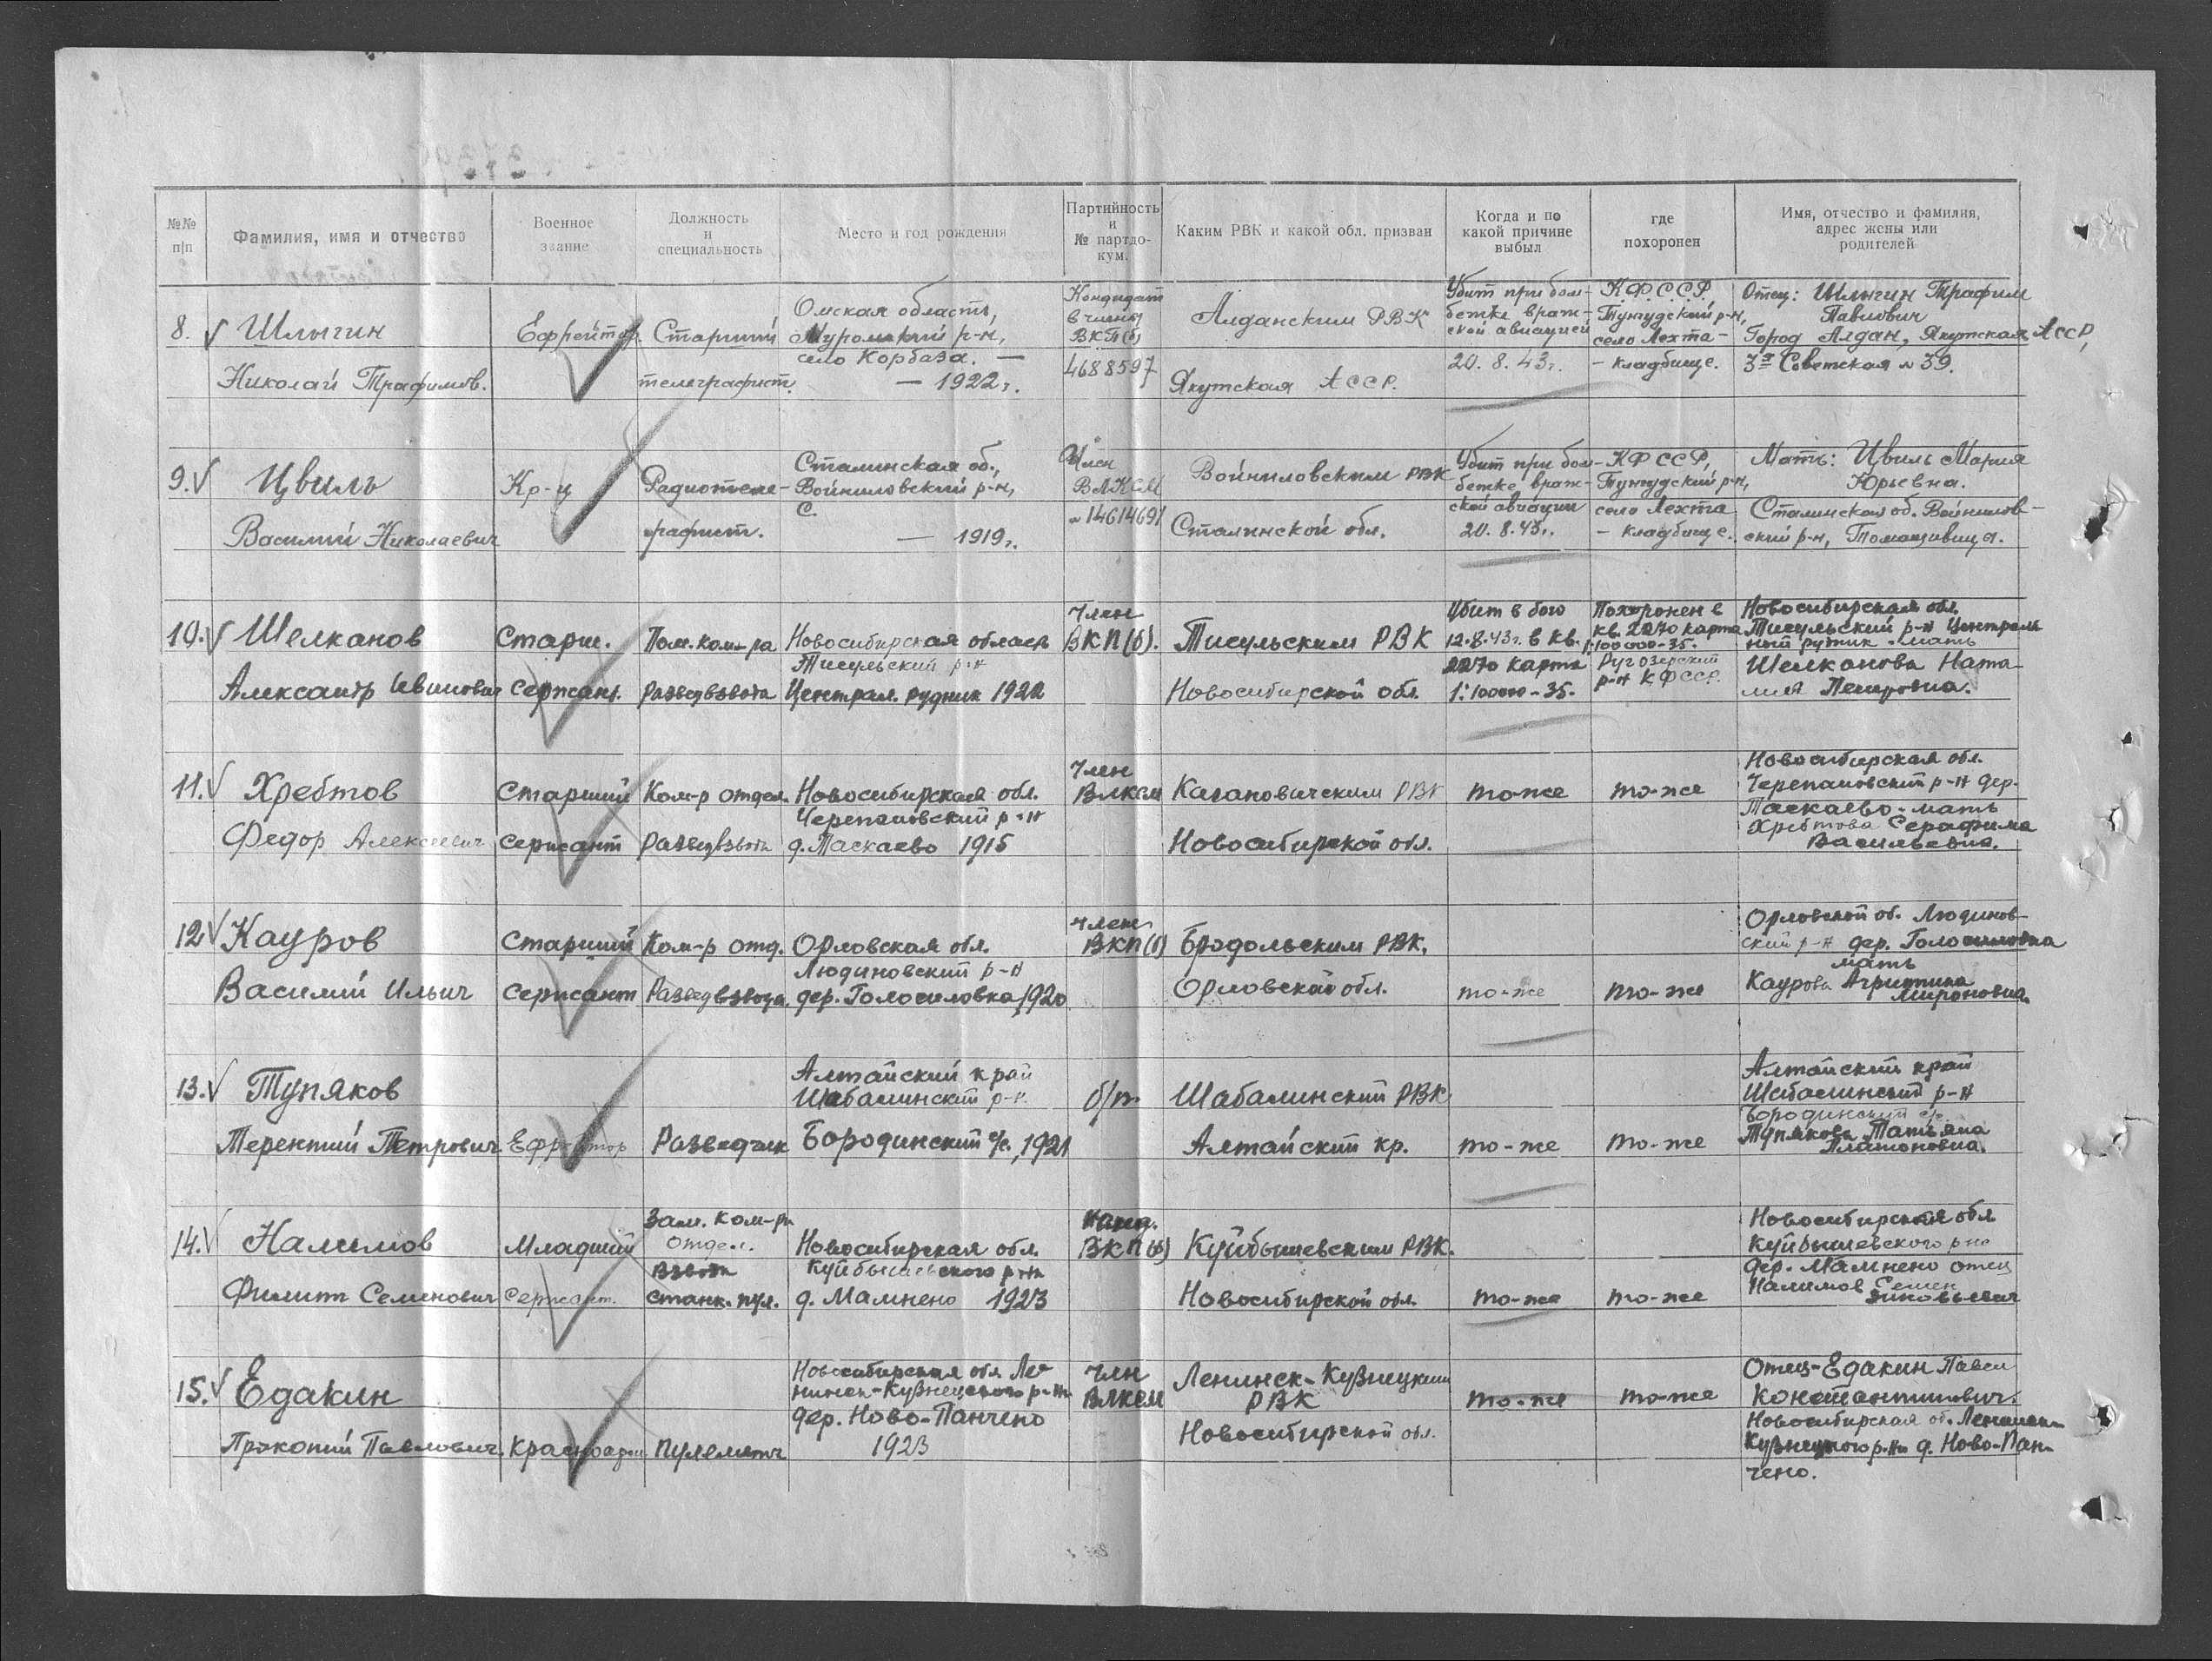 №№ п/п
Фамилия, имя и отчество
Военное звание
Должность и специальность
Место и год рождения
Партийность и № партдокум.
Каким РВК и какой обл. призван
Когда и по какой причине выбыл
где похоронен
Имя, отчество и фамилия, адрес жены или родителей
8. Шлыгин
Николай Трафимов.
Ефрейтор.
Старший
телеграфист.
Омская область,
Муромский р-н,
село Корбаза. —
— 1922 г.
Кандидат
в члены
ВКП(б)
4688597
Алданским РВК
Якутская АССР.
Убит при бом-
бежке враж-
ской авиацией
20. 8. 43 г.
К.Ф.С.С.Р.
Тунгудский р-н,
село Лехта -
- кладбище.
Отец: Шлыгин Трафим
Павлович
Город Алдан, Якутская АССР,
3я Советская № 39.
9. Цвиль
Василий Николаевич
Кр-ц
Радиотеле-
графист.
Сталинская об.,
Войниловский р-н,
С.
— 1919 г.
Член
ВЛКСМ
№ 14614691
Войниловским РВК
Сталинской обл.
Убит при бом-
бежке враж-
ской авиации
20. 8. 43 г.
КФССР,
Тунгудский р-н,
село Лехта
- кладбище.
Мать: Цвиль Мария
Юрьевна.
Сталинская об. Войнилов-
ский р-н, Томашивцы.
10. Шелканов
Александр Иванович
Старш.
Сержант.
Пом. ком-ра
разведвзвода
Новосибирская область
Тисульский р-н
Централ. рудник 1922
Член
ВКП(б).
Тисульским РВК
Новосибирской обл.
Убит в бою
12.8.43 г. в кв.
2270 карта
1:100000-35.
Похоронен в
кв. 2270 карта
1:100000-35.
Ругозерский
р-н КФССР.
Новосибирская обл.
Тисульский р-н Централь
ный рудник - мать
Шелканова Ната-
лия Петровна.
11. Хребтов
Федор Алексеевич
Старший
сержант
Ком-р отдел.
разведвзвода
Новосибирская обл.
Черепановский р-н
д. Паскаево 1915
Член
ВЛКСМ
Кагановичским РВК
Новосибирской обл.
то-же
то-же
Новосибирская обл.
Черепановский р-н дер.
Паскаево - мать
Хребтова Серафима
Васильевна.
12 Кауров
Василий Ильич
Старший
сержант
Ком-р отд.
Разведвзвода.
Орловская обл.
Людиновский р-н
дер. Голосиловка, 1920
член
ВКП(б)
Бродольским РВК.
Орловской обл.
то-же
то-же
Орловской об. Людинов-
ский р-н дер. Голосиловка
мать
Каурова Агриппина
Мироновна.
13. Тупяков
Терентий Петрович
Ефрейтор
Разведчик
Алтайский край
Шабалинский р-н.
Бородинский с/с., 1921
б/п.
Шабалинский РВК
Алтайский кр.
то-же
то-же
Алтайский край
Шабалинский р-н
Бородинский с/с.
Тупякова Татьяна
Платоновна.
14. Налимов
Филипп Семенович
Младший
Сержант.
Зам. ком-ра
отдел.
взвода
станк. пул.
Новосибирская обл.
Куйбышевского р-на
д. Мамнено 1923
Канд.
ВКП(б)
Куйбышевским РВК.
Новосибирской обл.
то-же
то-же
Новосибирская обл
Куйбышевского р-на
дер. Мамнено отец
Налимов Семен
Зиновьевич
15. Едакин
Прокопий Павлович
Красноарм.
пулеметч.
Новосибирская обл Ле
нинск-Кузнецкого р-на
дер. Ново-Панчено
1923
Член
ВЛКСМ
Ленинск-Кузнецким
РВК
Новосибирской обл.
то-же
то-же
Отец-Едакин Павел
Константинович.
Новосибирская об. Ленинск-
Кузнецкого р-на д. Ново-Пан-
чено.